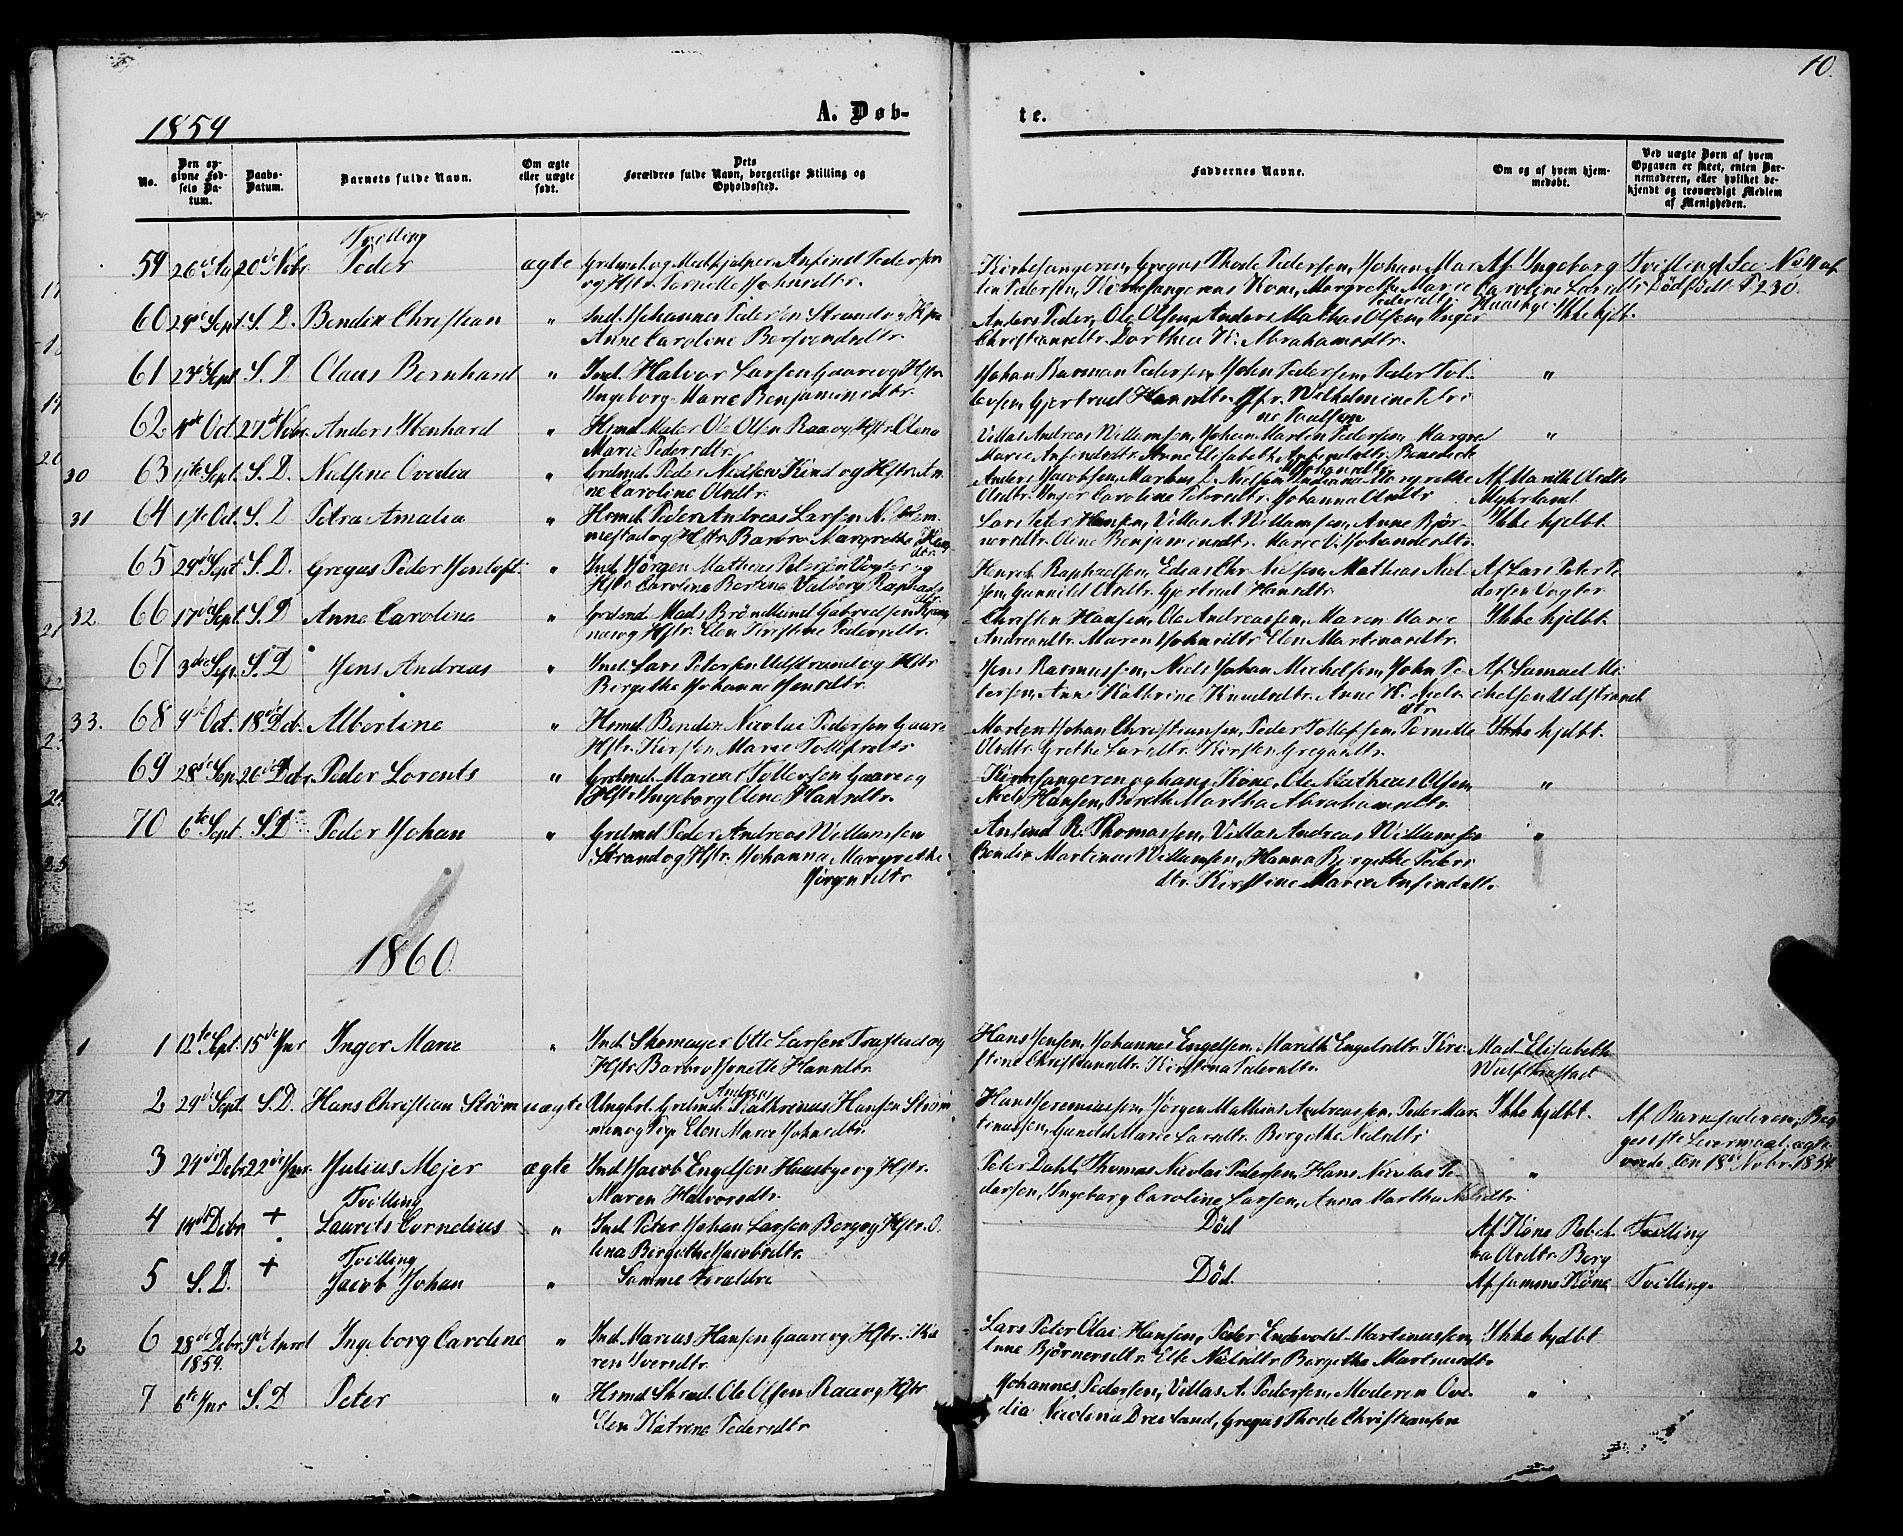 10.
1859
A. Døb-
te.
No.
Den op-
givne Fød-
sels Da-
tum.
Daabs-
Datum.
Barnets fulde Navn.
Om ægte
eller uægte
født.
Dets
Forældres fulde Navn, borgerlige Stilling og
Opholdssted.
Faddernes Navne.
Om og af hvem hjem-
medøbt.
Ved uægte Børn af hvem
Opgaven er skeet, enten Bar-
nemoderen, eller hvilket be-
kjendt og troværdigt Medlem
af Menigheden.
Tvilling
59 26de 20de Nvbr. Peder ægte Grdmd. og Medhjelper Anfind Pedersen
og Hstr. Pernille Johnsdtr.
Kirkesangeren, Gregus Thode Pedersen, Johan Mar-
tin Pedersen, Kirkesangerens Kone, Margrethe Marie
Pedersdtr.
Af Ingeborg
Caroline Larsdtr
Haashye
Tvilling See No 11 af
Dødfødt P. 230.
60 29de Sept S. D. Bendix Christian " Ind. Johannes Pedersen Strand og H.
Anne Caroline Bersvendsdtr.
Anders Peder, Ole Olsen, Anders Mathias Olsen, Inger
Christiansdtr. Dorthea K. Abrahamsdtr.
Ikke hjdbt.
61 23de Sept S. D Claus Bernhard " Ind. Halvor Larsen Gaare og Hstr.
Ingeborg Marie Benjaminsdtr.
Johan Rasman Pedersen, John Pedersen, Peder Tol-
levsen, Gjertrud Hansdtr. Jfr. Wilhelmine Petri-
ne Paulsen
"
62 4de Oct 27de Nvbr. Anders Ibenhard " Hsmd. Maler Ole Olsen Raa og Hstr. Olena
Marie Pedersdtr.
Villas Andreas Villumsen, Johan Martin Pedersen, Margret
Marie Anfindsdtr. Anne Elisabeth
"
30 63 1ste Sept. S. D. Nilsine Ovedia " Grdmd. Peder Nielsen Kind og Hstr. An-
ne Caroline Olsdtr.
Anders Jacobsen, Markus L. Nielsen
Olsdtr. Inger Caroline Petersdtr. Johanna Olsdtr
Af Marith Olsdtr
Myhrlamt.
31 64 1ste Oct. S. D Petra Amalia " Hsmd. Peder Andreas Larsen N. Hem-
mestad og Hstr. Barbro Margrethe Hans-
dtr.
Lars Peter Hansen, Villas A. Villumsen, Anne Bjør-
nersdtr. Oline Benjaminsdtr. Marie V. Johandsdtr.
Ikke hjdbt.
65 29de Sept S. D. Gregus Peder Jentoft " Ind. Jørgen Mathias Petersen Vogter og
Hstr. Carolina Bertina Valborg
Henrik Raphaelsen, Edias Chr. Nielsen, Mathias Niel-
sen, Gunnild Olsdtr. Gjertrud Hansdtr.
Af Lars Peter Pe-
dersen Vogter
32. 66 17de Sept. S. D Anne Carolina " Grdmd. Mads Brøndlund Gabrielsen
og Hstr. Elen Kirstine Pedersdtr.
Christen Hansen, Ole Andreassen, Maren Marie
Andreasdtr. Maren Johnsdtr. Elen Martinasdtr.
Ikke hjdbt.
67 3de Sep. S. D Jens Andreas " Ind. Lars Petersen Udstrand og Hstr
Birgethe Johanne Jensdtr.
Jens Rasmussen, Niels Johan Michelsen, John Pe-
tersen, Anne Kathrine Knudsdtr. Anne K. Niels-
dtr
Af Samuel Mi-
chelsen Udstrand
33. 68 9de Oct. 18de Deb. Albertine " Hsmd. Bendix Nicolai Pedersen Gaare
Hstr. Kirsten Marie Tollefsdtr
Morten Johan Christiansen, Peder Tollefsen, Pernille
Olsdtr. Grethe Larsdtr. Kirsten Gregusdtr.
Ikke hjdbt.
69 28de Sep. 26de Debr. Peder Lorents " Grdmd. Marcus Tollefsen Gaare og
Hstr. Ingeborg Elene Hansdtr.
Kirkesangeren og hans Kone, Ole Mathias Olsen,
Niels Hansen, Berith Martha Abrahamsdtr.
"
70 6te Sept S. D Peder Johan " Grdmd. Peder Andreas Villumsen
Strand og Hstr. Johanna Margrethe
Jørgensdtr
Anfind R. Thomassen, Villas Andreas Villumsen
Bendix Martinus Villumsen, Hanna Birgethe Peders-
dtr. Kirstine Marie Anfindsdtr.
"
1860.
1 1 12te Sept. 15de Jnr Inger Marie " Ind. Skomager Otte Larsen Trastad og
Hstr. Barbro Jonette Hansdtr.
Hans Jensen, Johannes Engelsen, Marith Engelsdtr. Kir-
stine Christiansdtr. Kirstina Pedersdtr.
Mad. Elisabeth
Wulf Trastad
2 29de Sept. S. D. Hans Christian Strøm uægte Ungkrl. Grdmd. Cathrinus Hansen Strøm-
Andrea
og Pige Elen Marie Johnsdtr.
Hans Jeremiassen, Jørgen Mathias Andreassen, Peder Mar-
tinussen, Gunild Marie Larsdtr. Birgethe Nielsdtr
Ikke hjdbt.
Af Barnefaderen, Beg-
ges 1ste Leiermaal. ægte-
viede den 18de Novbr. 1859.
3 24de Debr 22de Jnr. Julius Mejer ægte Ind. Jacob Engelsen Haasbye og Hstr.
Maren Halvorsdtr.
Peter Dahl, Thomas Nicolai Pedersen, Hans Nicolai Pe-
dersen, Ingeborg Caroline Larsen, Anna Martha Nielsdtr
"
Tvilling
4 14de Debr + Laurits Cornelius " Ind. Peter Johan Larsen Berg og Hstr. O-
lina Birgethe Jacobsdtr.
Død
Af Kone Rebek-
ka Olsdtr. Berg
Tvilling
Tvilling
5 S. D. + Jacob Johan " Samme Forældre
Død.
Af samme Kone
Tvilling.
2 6 28de Debr 9de April Ingeborg Caroline " Ind. Marius Hansen Gaare og Hstr. Ka-
1859.
ren Iversdtr.
Lars Peter Olai Hansen, Peder Endevold Martinussen,
Anne Bjørnersdtr. Else Nielsdtr Birgethe Martinusdtr.
Ikke hjdbt
7 6te Jnr S. D Peter " Hsmd. Skræd. Ole Olsen Raa og Hstr
Elen Katrina Pedersdtr
Johannes Pedersen, Villas A. Pedersen, Moderen Ove-
dia Nicolina Dreeland, Gregus Thode Christiansen
"